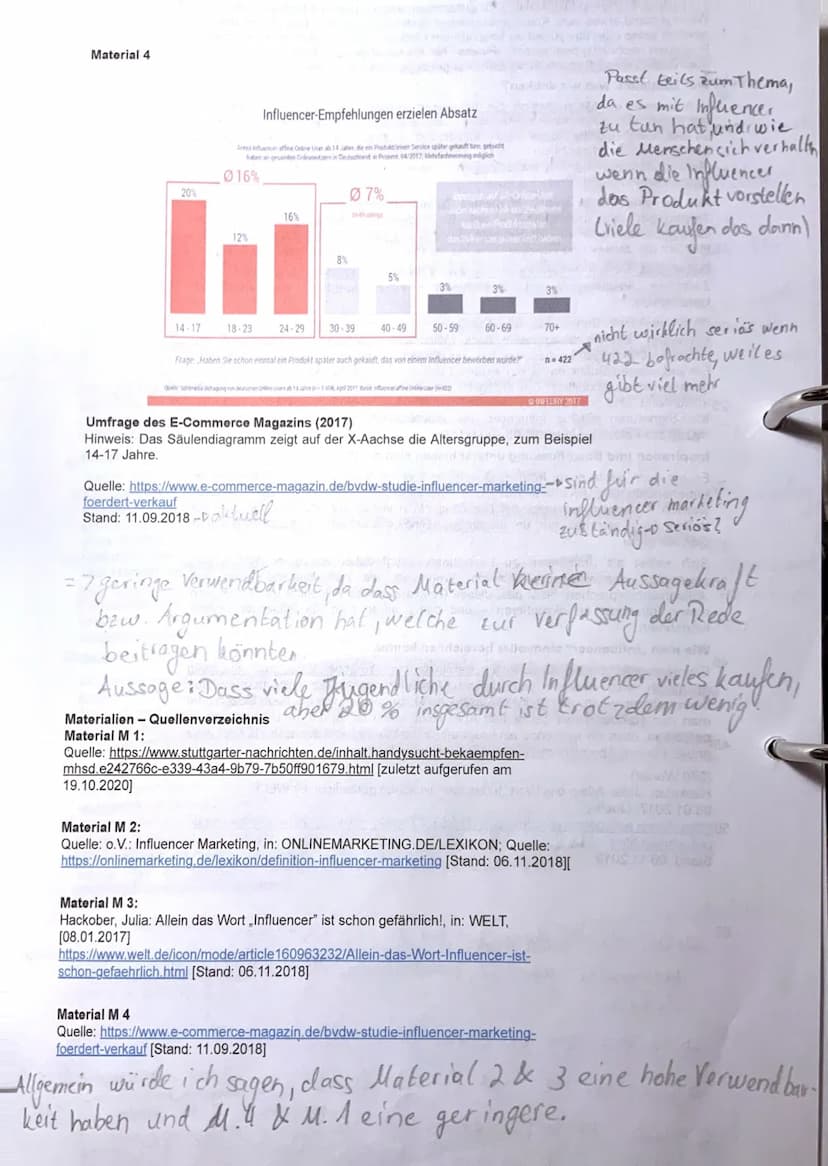 Material 4
Passt teils zum Thema,
da es mit Influencer
zu tun hat und wie
die Menschen sich verhalten
wenn die Influencer
das Produkt vorstellen
(viele kaufen das dann)
Influencer-Empfehlungen erzielen Absatz
Ø 16%
Ø 7%
20%
12%
16%
8%
5%
3%
3%
3%
14 - 17
18 - 23
24 - 29
30 - 39
40 - 49
50 - 59
60 - 69
70+
Frage: „Haben Sie schon einmal ein Produkt später auch gekauft, das von einem Influencer beworben wurde?"
n = 422
nicht wirklich seriös wenn
422 befrachte, weil es
gibt viel mehr
© INFLURY 2017
Umfrage des E-Commerce Magazins (2017)
Hinweis: Das Säulendiagramm zeigt auf der X-Aachse die Altersgruppe, zum Beispiel
14-17 Jahre.
Quelle: https://www.e-commerce-magazin.de/bvdw-studie-influencer-marketing-
foerdert-verkauf
Stand: 11.09.2018 → aktuell
→ sind für die
influencer marketing
zuständig → seriös?
=> geringe Verwendbarkeit, da dass Material keine Aussagekraft
bzw. Argumentation hat, welche zur verfassung der Rede
beitragen könnten
Aussage: Dass viele Jugendliche durch Influencer vieles kaufen,
aber 20 % insgesamt ist trotzdem wenig.
Materialien – Quellenverzeichnis
Material M 1:
Quelle: https://www.stuttgarter-nachrichten.de/inhalt.handysucht-bekaempfen-
mhsd.e242766c-e339-43a4-9b79-7b50ff901679.html [zuletzt aufgerufen am
19.10.2020]
Material M 2:
Quelle: o.V.: Influencer Marketing, in: ONLINEMARKETING.DE/LEXIKON; Quelle:
https://onlinemarketing.de/lexikon/definition-influencer-marketing [Stand: 06.11.2018][
Material M 3:
Hackober, Julia: Allein das Wort „Influencer" ist schon gefährlich!, in: WELT,
[08.01.2017]
https://www.welt.de/icon/mode/article160963232/Allein-das-Wort-Influencer-ist-
schon-gefaehrlich.html [Stand: 06.11.2018]
Material M 4
Quelle: https://www.e-commerce-magazin.de/bvdw-studie-influencer-marketing-
foerdert-verkauf [Stand: 11.09.2018]
Allgemein würde ich sagen, dass Material 2 & 3 eine hohe Verwendbar-
keit haben und M. 4 & M. 1 eine geringere.